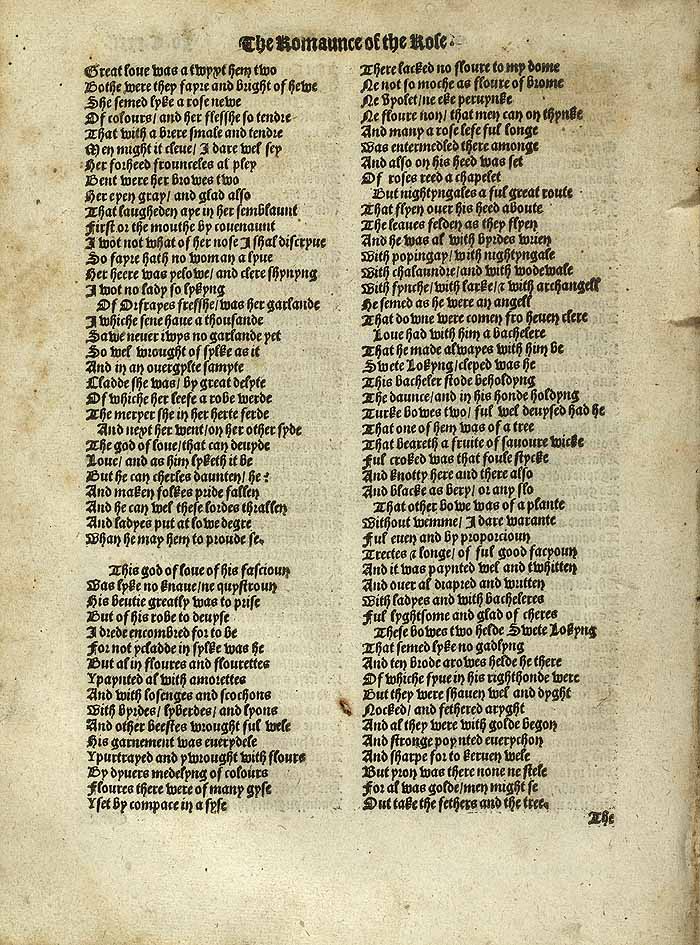 The Romaunce of the Rose.
Great loue was a twyxt hem two
Bothe were they fayre and bright of hewe
She semed lyke a rose newe
Of colours/ and her flesshe so tendre
That with a brere smale and tendre
Men might it cleue/ I dare wel sey
Her forheed frounceles al pley
Bent were her browes two
Her eyen gray/ and glad also
That laugheden aye in her semblaunt
First or the mouthe by couenaunt
I wot not what of her nose I shal discryue
So fayre hath no woman a lyue
Her heere was yelowe/ and clere shynyng
I wot no lady so lykyng
Of Orfrayes fresshe/ was her garlande
I whiche sene haue a thousande
Sawe neuer iwys no garlande yet
So wel wrought of sylke as it
And in an ouergylte samyte
Cladde she was/ by great delyte
Of whiche her leefe a robe werde
The meryer she in her herte ferde
And next her went/ on her other syde
The god of loue/ that can deuyde
Loue/ and as him lyketh it be
But he can cherles daunten/ he?
And maken folkes pride fallen
And he can wel these lordes thrallen
And ladyes put at lowe degre
Whan he may hem to proude se.
This god of loue of his fascioun
Was lyke no knaue/ ne quystroun
His beutie greatly was to prise
But of his robe to deuyse
I drede encombred for to be
For not ycladde in sylke was he
But al in floures and flourettes
Ypaynted al with amorettes
And with losenges and scochons
With byrdes/ lyberdes/ and lyons
And other beestes wrought ful wele
His garnement was euerydele
Ypurtrayed and ywrought with flours
By dyuers medelyng of colours
Floures there were of many gyse
Yset by compace in a syse
There lacked no floure to my dome
Ne not so moche as floure of brome
Ne vyolet/ ne eke peruynke
Ne floure non/ that men can on thynke
And many a rose lefe ful longe
Was entermedled there amonge
And also on his heed was set
Of roses reed a chapelet
But nightyngales a ful great route
That flyen ouer his heed aboute
The leaues felden as they flyen
And he was al with byrdes wrien
With popingay/ with nightyngale
With chalaundre/ and with wodewale
With fynche/ with larke/ & with archangell
He semed as he were an angell
That downe were comen fro heuen clere
Loue had with him a bachelere
That he made alwayes with him be
Swete Lokyng/ cleped was he
This bacheler stode beholdyng
The daunce/ and in his honde holdyng
Turke bowes two/ ful wel deuysed had he
That one of hem was of a tree
That beareth a fruite of sauoure wicke
Ful croked was that foule stycke
And knotty here and there also
And blacke as bery/ or any slo
That other bowe was of a plante
Without wemme/ I dare warante
Ful euen and by proporcioun
Trectes & longe/ of ful good facyoun
And it was paynted wel and twhitten
And ouer al diapred and written
With ladyes and with bacheleres
Ful lyghtsome and glad of cheres
These bowes two helde Swete Lokyng
That semed lyke no gadlyng
And ten brode arowes helde he there
Of whiche fyue in his righthonde were
But they were shauen wel and dyght
Nocked/ and fethered aryght
And al they were with golde begon
And stronge poynted euerychon
And sharpe for to keruen wele
But yron was there none ne stele
For al was golde/ men might se
Out take the fethers and the tree.
The